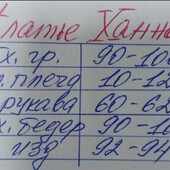 Платье Ханна
х. гр. 90-10
. плеча 10-12
рукава 60-62
х. бедер 90-10
изд 92-94